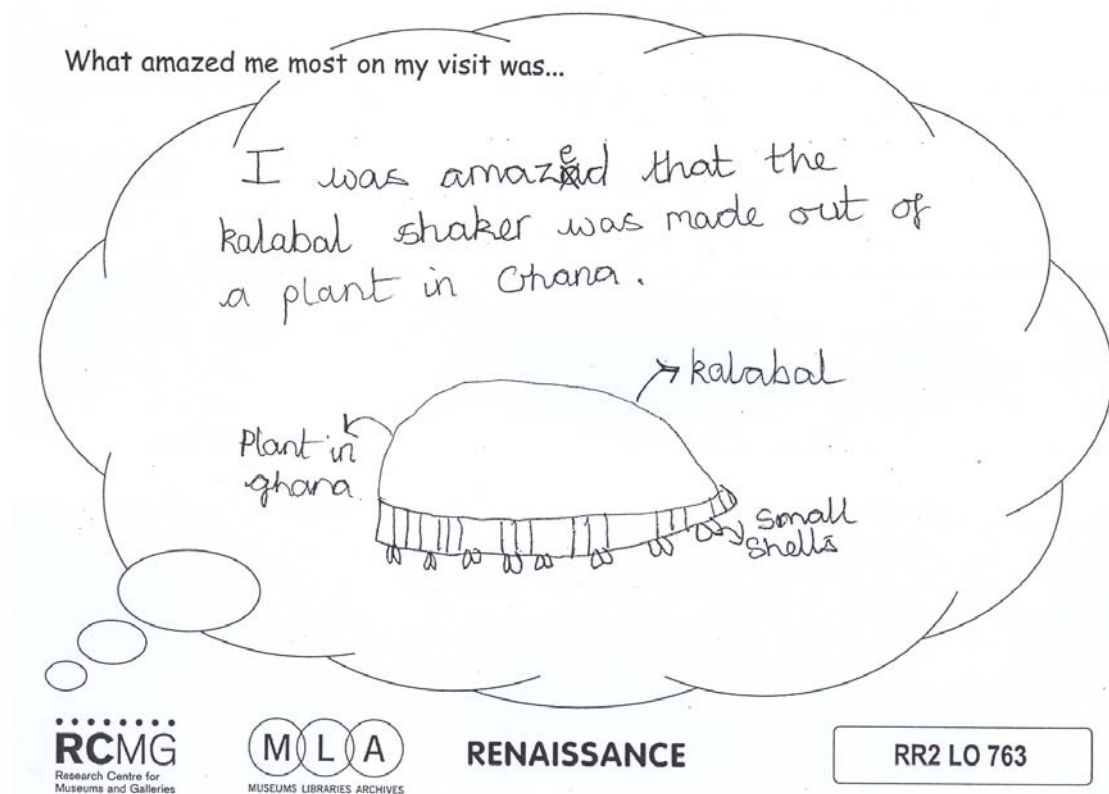 What amazed me most on my visit was...
I was amazed that the
kalabal shaker was made out of
a plant in Ghana.
kalabal
Plant in
ghana
small
shells
RCMG
Research Centre for
Museums and Galleries
MLA
MUSEUMS LIBRARIES ARCHIVES
RENAISSANCE
RR2 LO 763